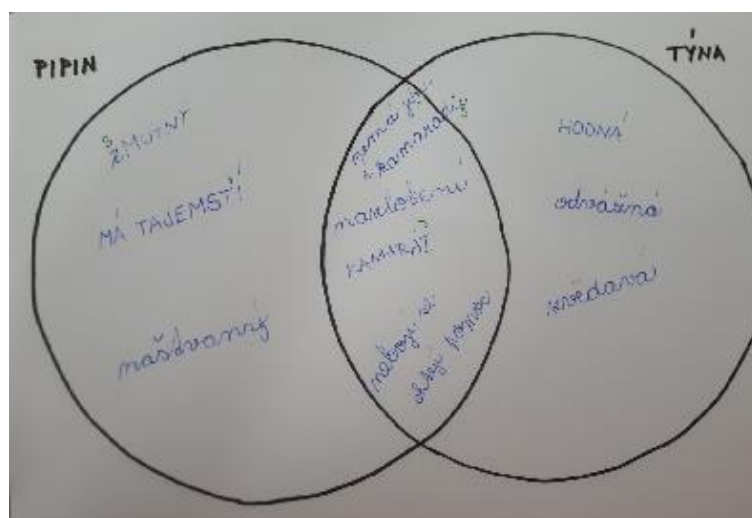 PIPIN
TÝNA
SMUTNÝ
MÁ TAJEMSTÍ
naštvaný
kamarády
KAMARÁĎ
nebojí se
chtějí pomoc
HODNÁ
odvážná
zvědavá